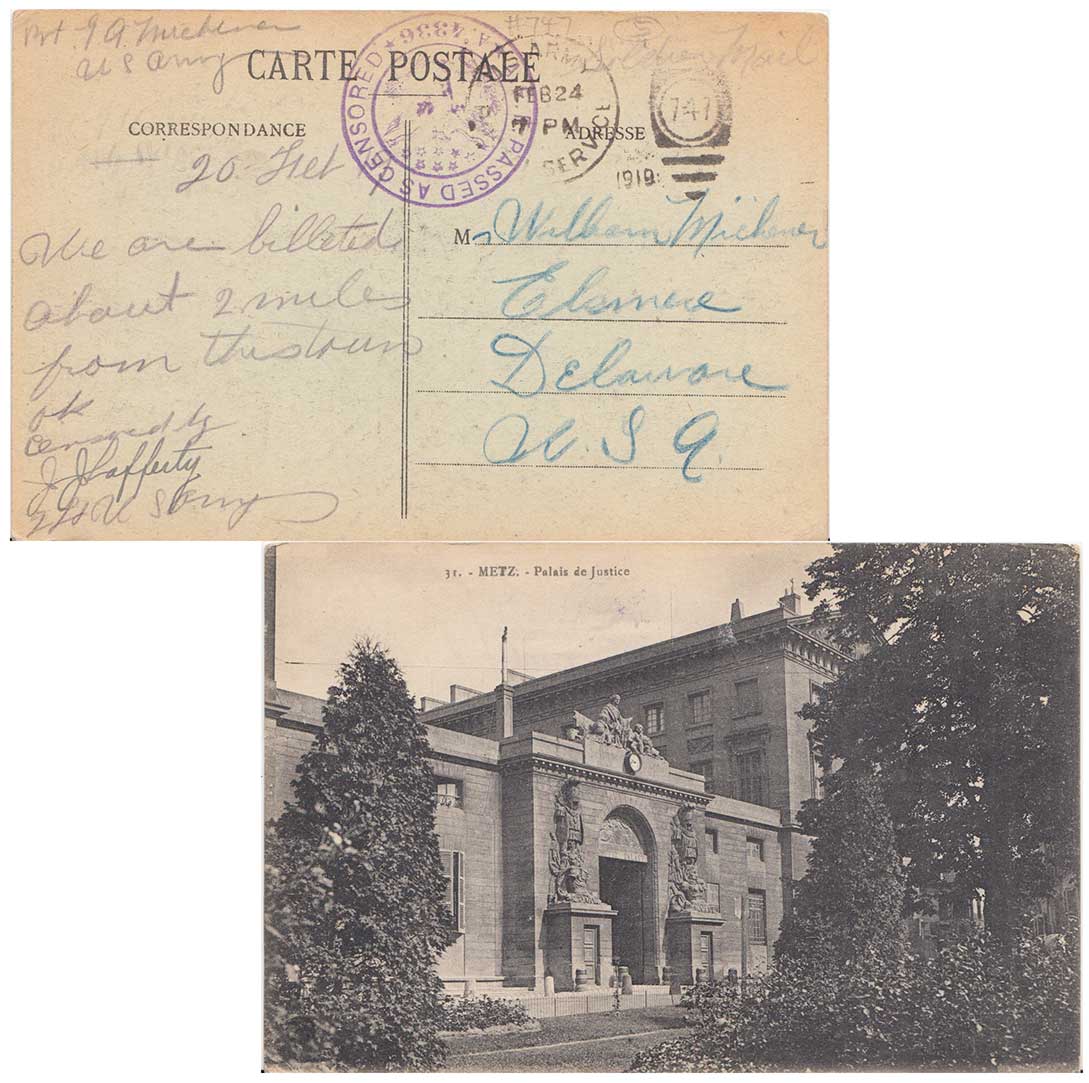 Pvt. J A Michener
US Army
#747
Soldiers Mail
CARTE POSTALE
A.E.F. PASSED AS CENSORED ★ A.4336 ★
ARMY
FEB 24
7 PM
SERVICE
1919
747
CORRESPONDANCE
ADRESSE
20 Feb
We are billeted
about 2 miles
from this town
ok
Censored by
J J Lafferty
2 Lt U S Army
Mr William Michener
Elsmere
Delaware
U. S A.
31. - METZ. - Palais de Justice